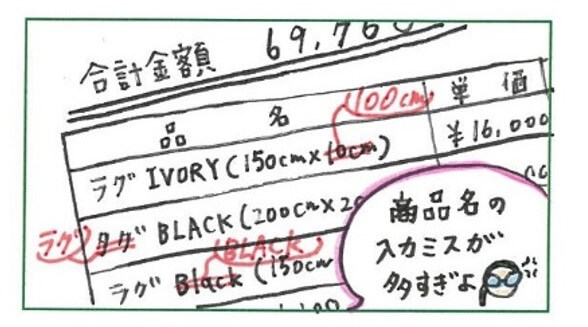 合計金額 69,760
品名 単価
100cm
ラグ IVORY(150cm×10cm) ¥16,000
ラグ タグ BLACK(200cm×2
BLACK
ラグ Black (150cm
商品名の
入力ミスが
多すぎよ